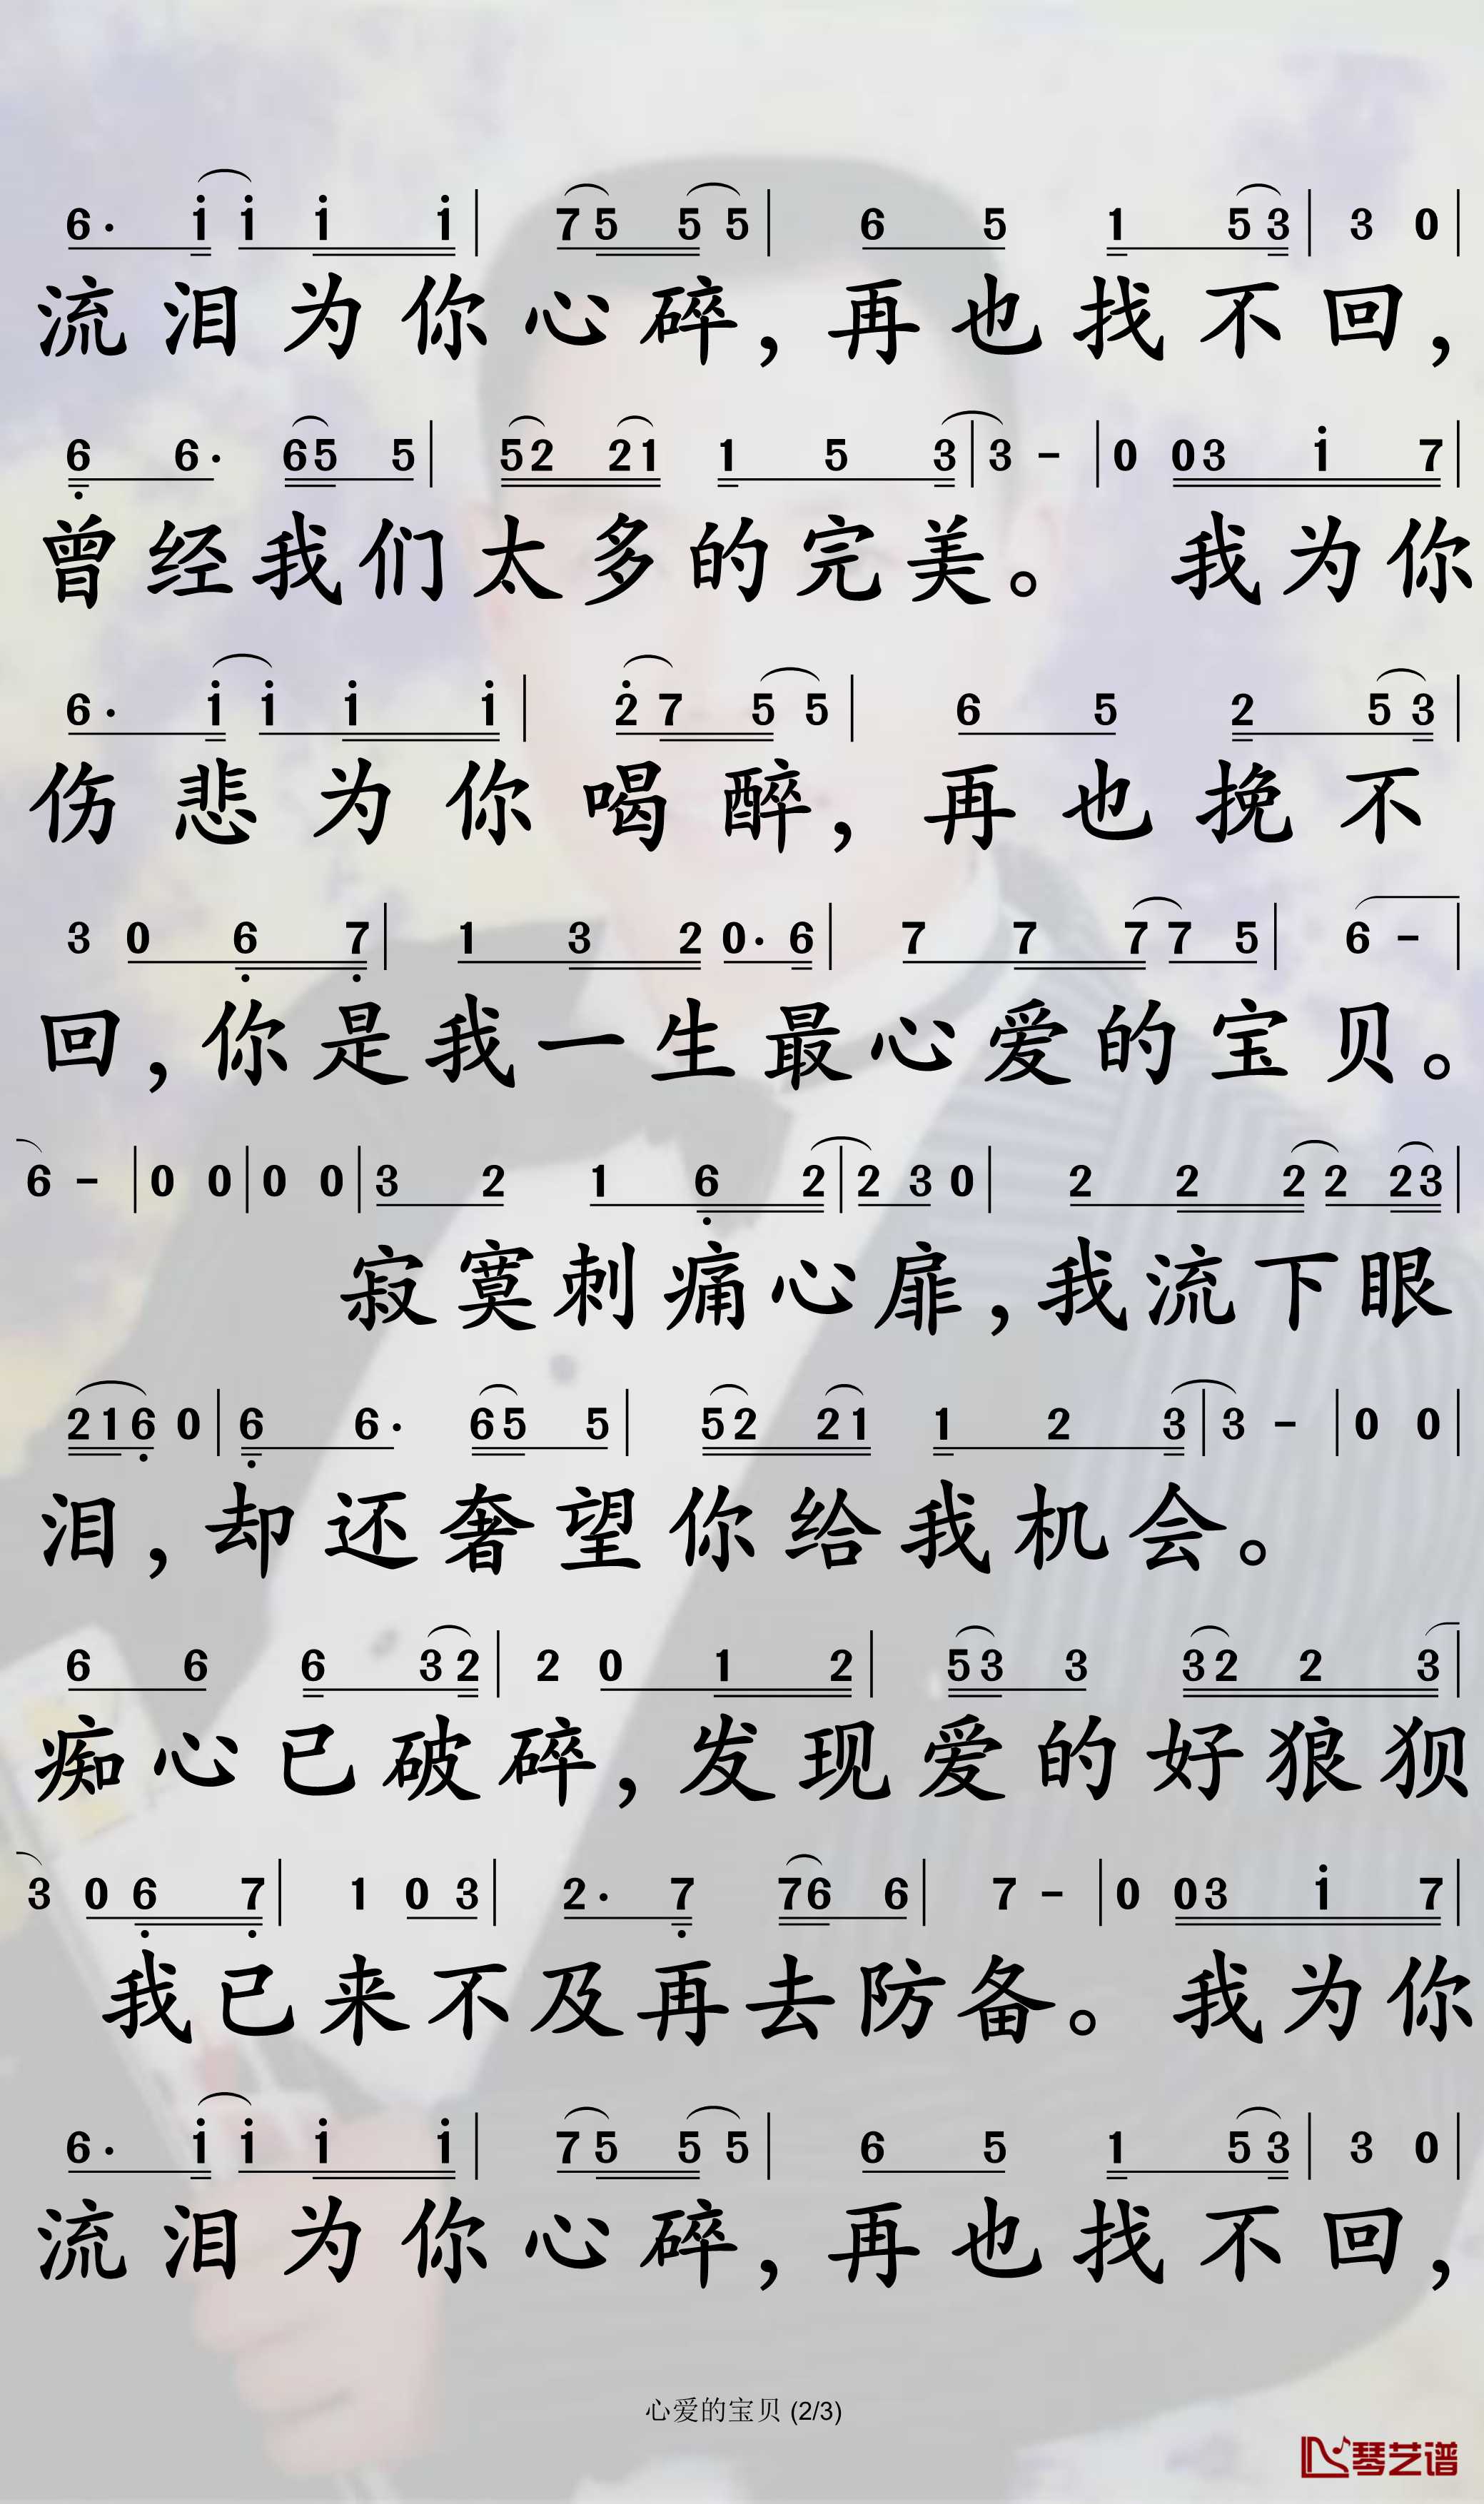 6· i i i i | 7 5 5 5 | 6 5 1 5 3 | 3 0 |
流泪为你心碎，再也找不回，
6 6· 6 5 5 | 5 2 2 1 1 5 3 | 3 - | 0 0 3 i 7 |
曾经我们太多的完美。 我为你
6· i i i i | 2 7 5 5 | 6 5 2 5 3 |
伤悲为你喝醉，再也挽不
3 0 6 7 | 1 3 2 0· 6 | 7 7 7 7 5 | 6 - |
回，你是我一生最心爱的宝贝。
6 - | 0 0 | 0 0 | 3 2 1 6 2 | 2 3 0 | 2 2 2 2 2 3 |
寂寞刺痛心扉，我流下眼
2 1 6 0 | 6 6· 6 5 5 | 5 2 2 1 1 2 3 | 3 - | 0 0 |
泪，却还奢望你给我机会。
6 6 6 3 2 | 2 0 1 2 | 5 3 3 3 2 2 3 |
痴心已破碎，发现爱的好狼狈
3 0 6 7 | 1 0 3 | 2· 7 7 6 6 | 7 - | 0 0 3 i 7 |
我已来不及再去防备。我为你
6· i i i i | 7 5 5 5 | 6 5 1 5 3 | 3 0 |
流泪为你心碎，再也找不回，
心爱的宝贝 (2/3)
琴艺谱